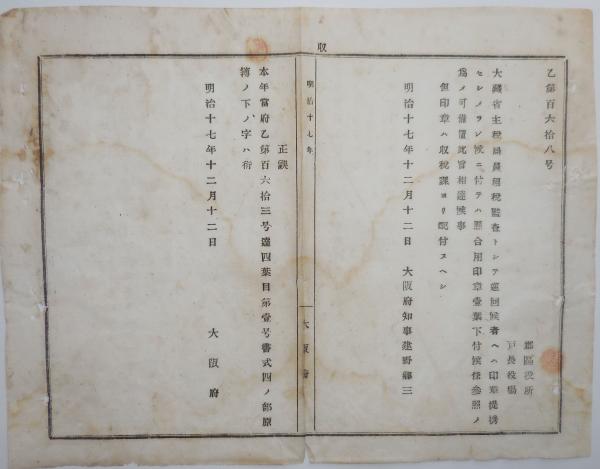 収
乙第百六拾八号
郡区役所
戸長役場
大蔵省主税局員租税監査トシテ巡回候者ヘハ印章提携
セシメラレ候ニ付テハ照合用印章壹葉下付候條參照ノ
為メ可備置此旨相達候事
但印章ハ収税課ヨリ配付スヘシ
明治十七年十二月十二日 大阪府知事建野郷三
明治十七年
大阪府
正誤
本年當府乙第百六拾三号達四葉目第壹号書式四ノ部原
簿ノ下ノ字ハ衍
明治十七年十二月十二日
大阪府